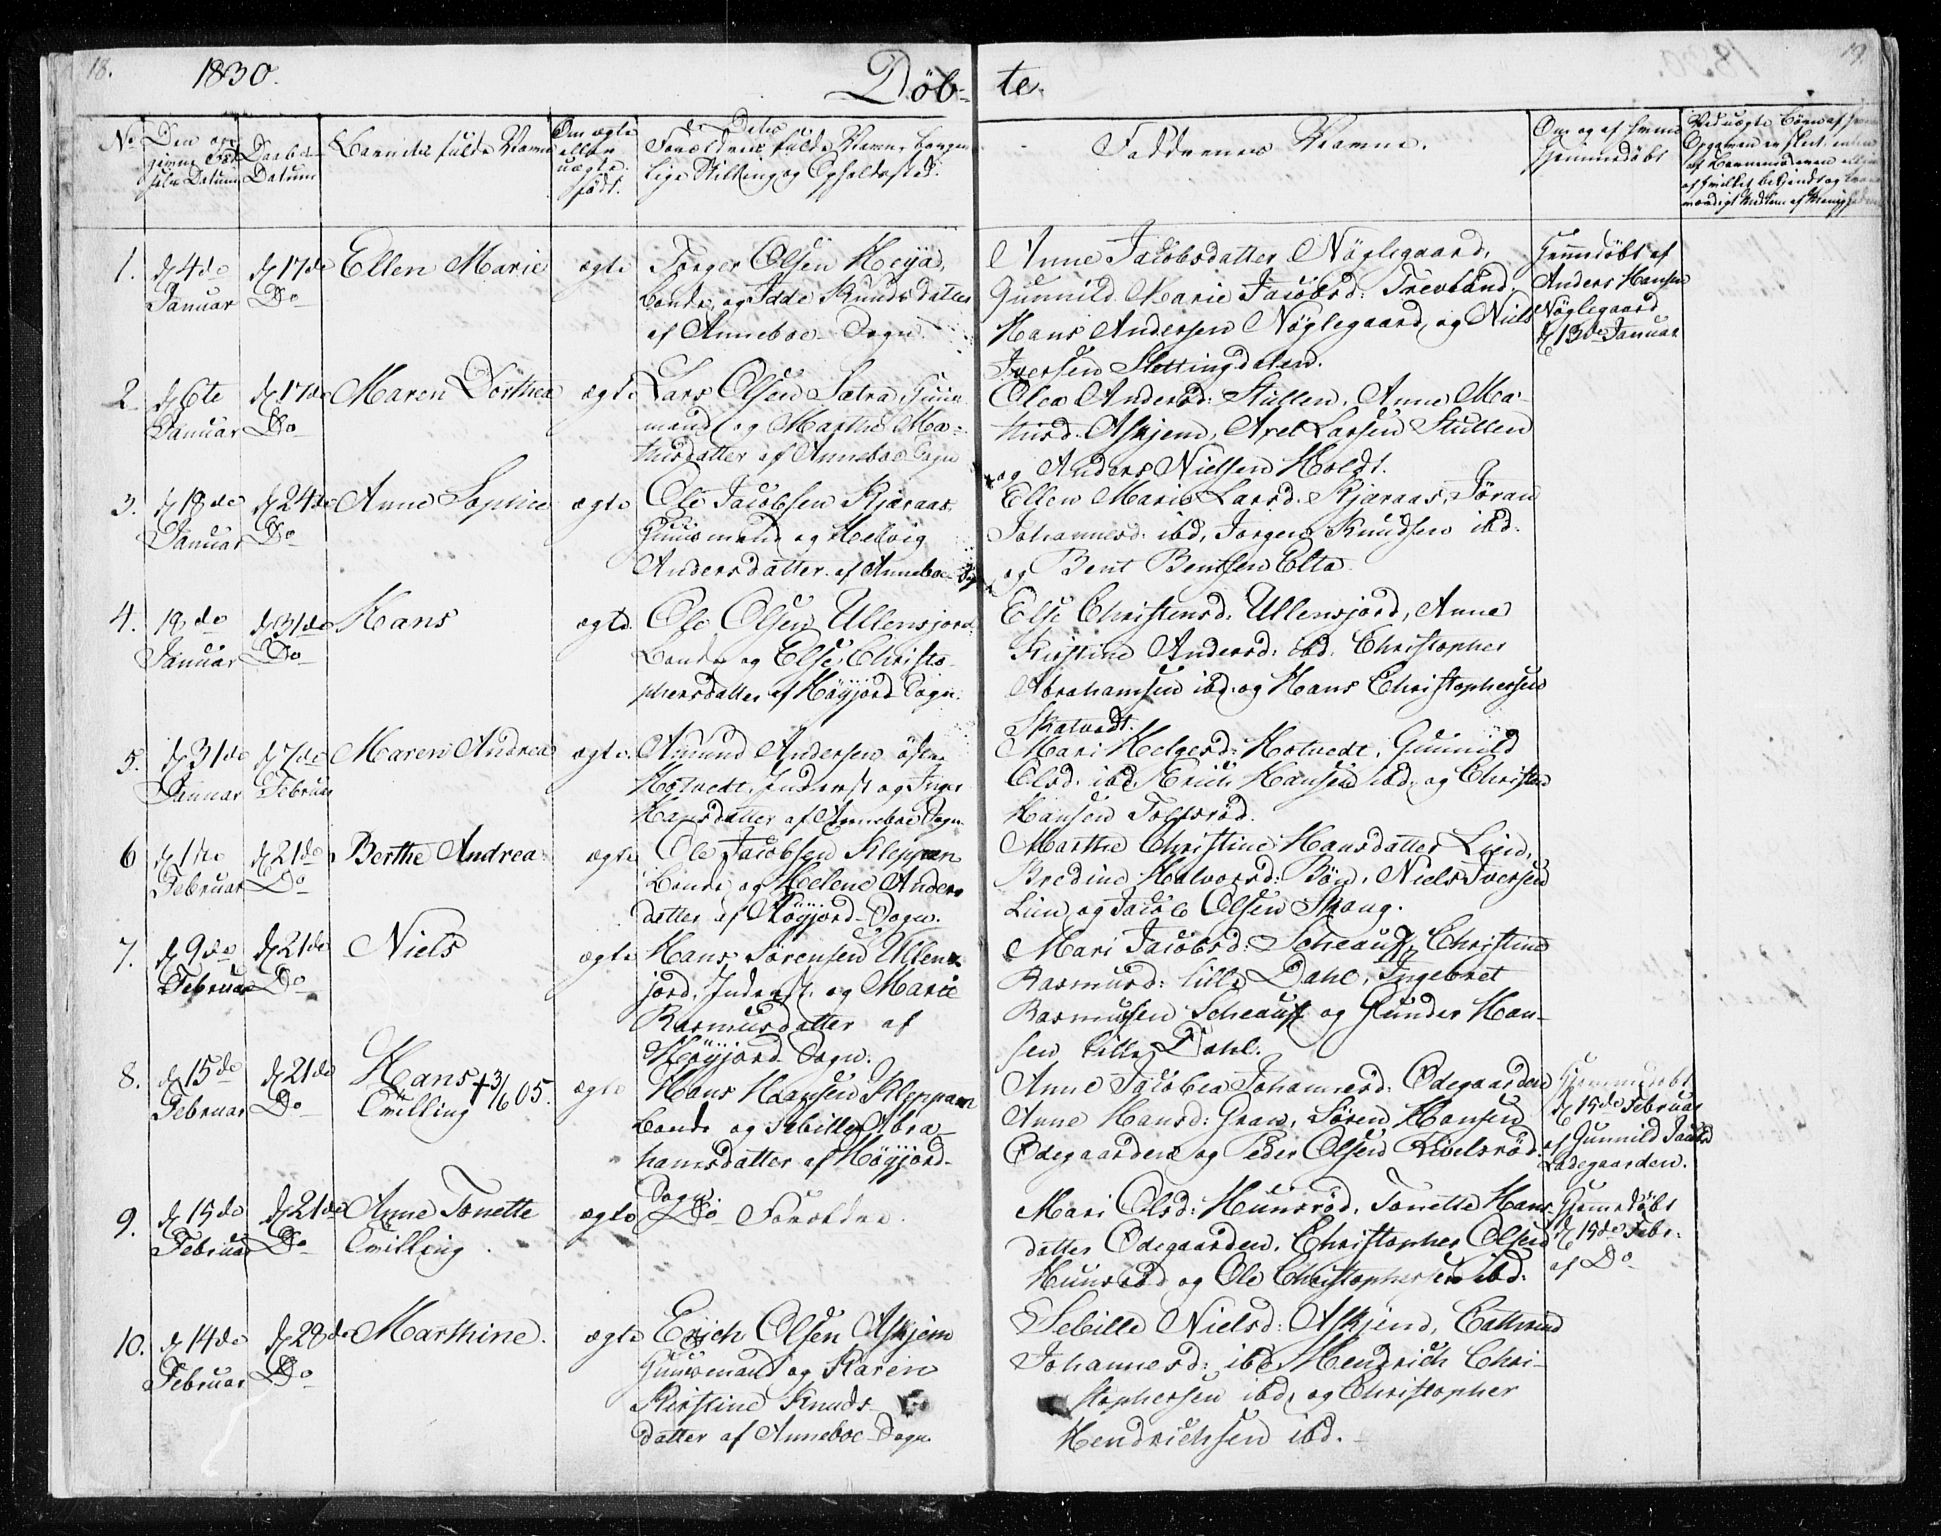 18.
1830.
Døb-
te.
19
No
Den op-
givne Fød-
sels Datum
Daabs-
Datum
Barnets fulde Navn
Om ægte
eller
uægte
født.
Forældrenes fulde Navne, borger-
lige Stilling og Opholdssted.
Faddernes Navne.
Om og af hvem
hjemmedøbt
1.
d 4de
Januar
d 17de
Do
Ellen Marie
ægte
Torger Olsen Heyjad,
bonde og Idde Knudsdatter
af Anneboe Sogn
Anne Jacobsdatter Nøglegaard,
Gunnild Marie Jacobsd: Trevland,
Hans Andersen Nøglegaard, og Niels
Iversen Slettingdalen.
Hjemdøbt af
Anders Hansen
Nøglegaard
d 13de Januar
2
d 6te
Januar
d 17de
Do
Maren Dorthea
ægte
Lars Olsen Sætra, Huus-
mand og Marthe Ma-
thisdatter af Anneboe Sogn
Olea Andersd: Stullen, Anne Ma-
thisd: Askjem, Axel Larsen Stullen
og Anders Nielsen Holdt.
3.
d 18de
Januar
d 24de
Do
Anne Sophie
ægte
Ole Jacobsen Kjæraas
Huusmand og Helvig
Andersdatter af Anneboe Sogn
Ellen Marie Larsd: Kjæraas, Jøran
Johannesd: ibd, Jørgen Knudsen ibd.
og Bent Bentsen Elta.
4.
18de
Januar
d 31de
Do
Hans
ægte
Ole Olsen Ullensjord
Bonde og Else Christo-
phersdatter af Høyjord Sogn.
Else Christensd: Ullensjord, Anne
Kirstine Andersd: ibd. Christopher
Abrahamsen ibd. og Hans Christophersen
Skatvedt.
5.
d 31de
Januar
d 7de
Februar
Maren Andrea
ægte.
Amund Andersen østre
Hotvedt, Inderst og Inger
Hansdatter af Anneboe Sogn
Mari Helgesd: Hotvedt, Gunnild
Olsd: ibd, Erich Hansen ibd, og Christen
Hansen Tolfsrød.
6
d 1ste
Februar
d 21de
Do
Berthe Andrea
ægte
Ole Jacobsen Kleppan
Bonde og Helene Anders-
datter af Høyjord Sogn.
Marthe Christine Hansdatter Lien,
Bredine Halvorsd: Bøn, Niels Iversen
Lien, og Jacob Olsen Skoug.
7.
d 9de
Februar
d 21de
Do
Niels
ægte
Hans Sørensen Ullens-
jord, Inderst og Marie
Rasmusdatter af
Høyjord Sogn.
Mari Jacobsd: Scheauf, Christine
Rasmusd: lille Dahl, Ingebret
Rasmussen Scheauf og Gunder Han-
sen lille Dahl.
8.
d 15de
Februar
d 21de
Do
Hans
Tvilling
+ 3/6 05.
ægte
Hans Hansen Kleppan
Bonde og Sebille Abra-
hamsdatter af Høyjord-
Sogn.
Anne Jacobea Johannesd: Ødegaarden
Anne Hansd: Gran, Søren Hansen
Ødegaarden og Peder Olsen Hvelsrød.
Hjemmedøbt
d 15de Februar
af Gunnild Jacobsd
Ladegaarden.
9.
d 15de
Februar
d 21de
Do
Anne Tonette
Tvilling
ægte
Do Forældre.
Mari Olsd: Hunsrød, Tonette Hans-
datter Ødegaarden, Christopher Olsen
Hunsrød og Ole Christophersen ibd.
Hjemmedøbt
d 15de Febr.
af Do
10.
d 14de
Februar
d 28de
Do
Marthine.
ægte
Erich Olsen Askjem
Huusmand og Karen
Kirstine Knuds-
datter af Anneboe Sogn
Sebille Nielsd: Askjem, Cathrine
Johannesd: ibd, Hendrich Chri-
stophersen ibd, og Christopher
Hendrichsen ibd.